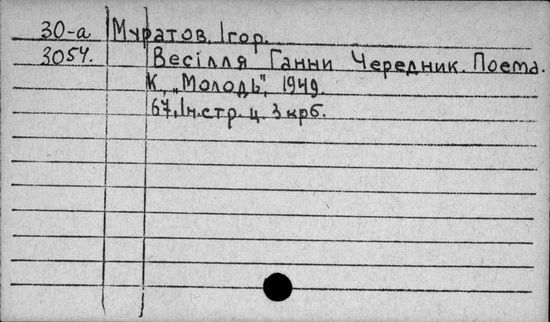 30-а Муратов, Ігор.
3054. Весілля Ганни Чередник. Поема.
К., „Молодь", 1949.
67, Iн.стр. ц. 3 крб.